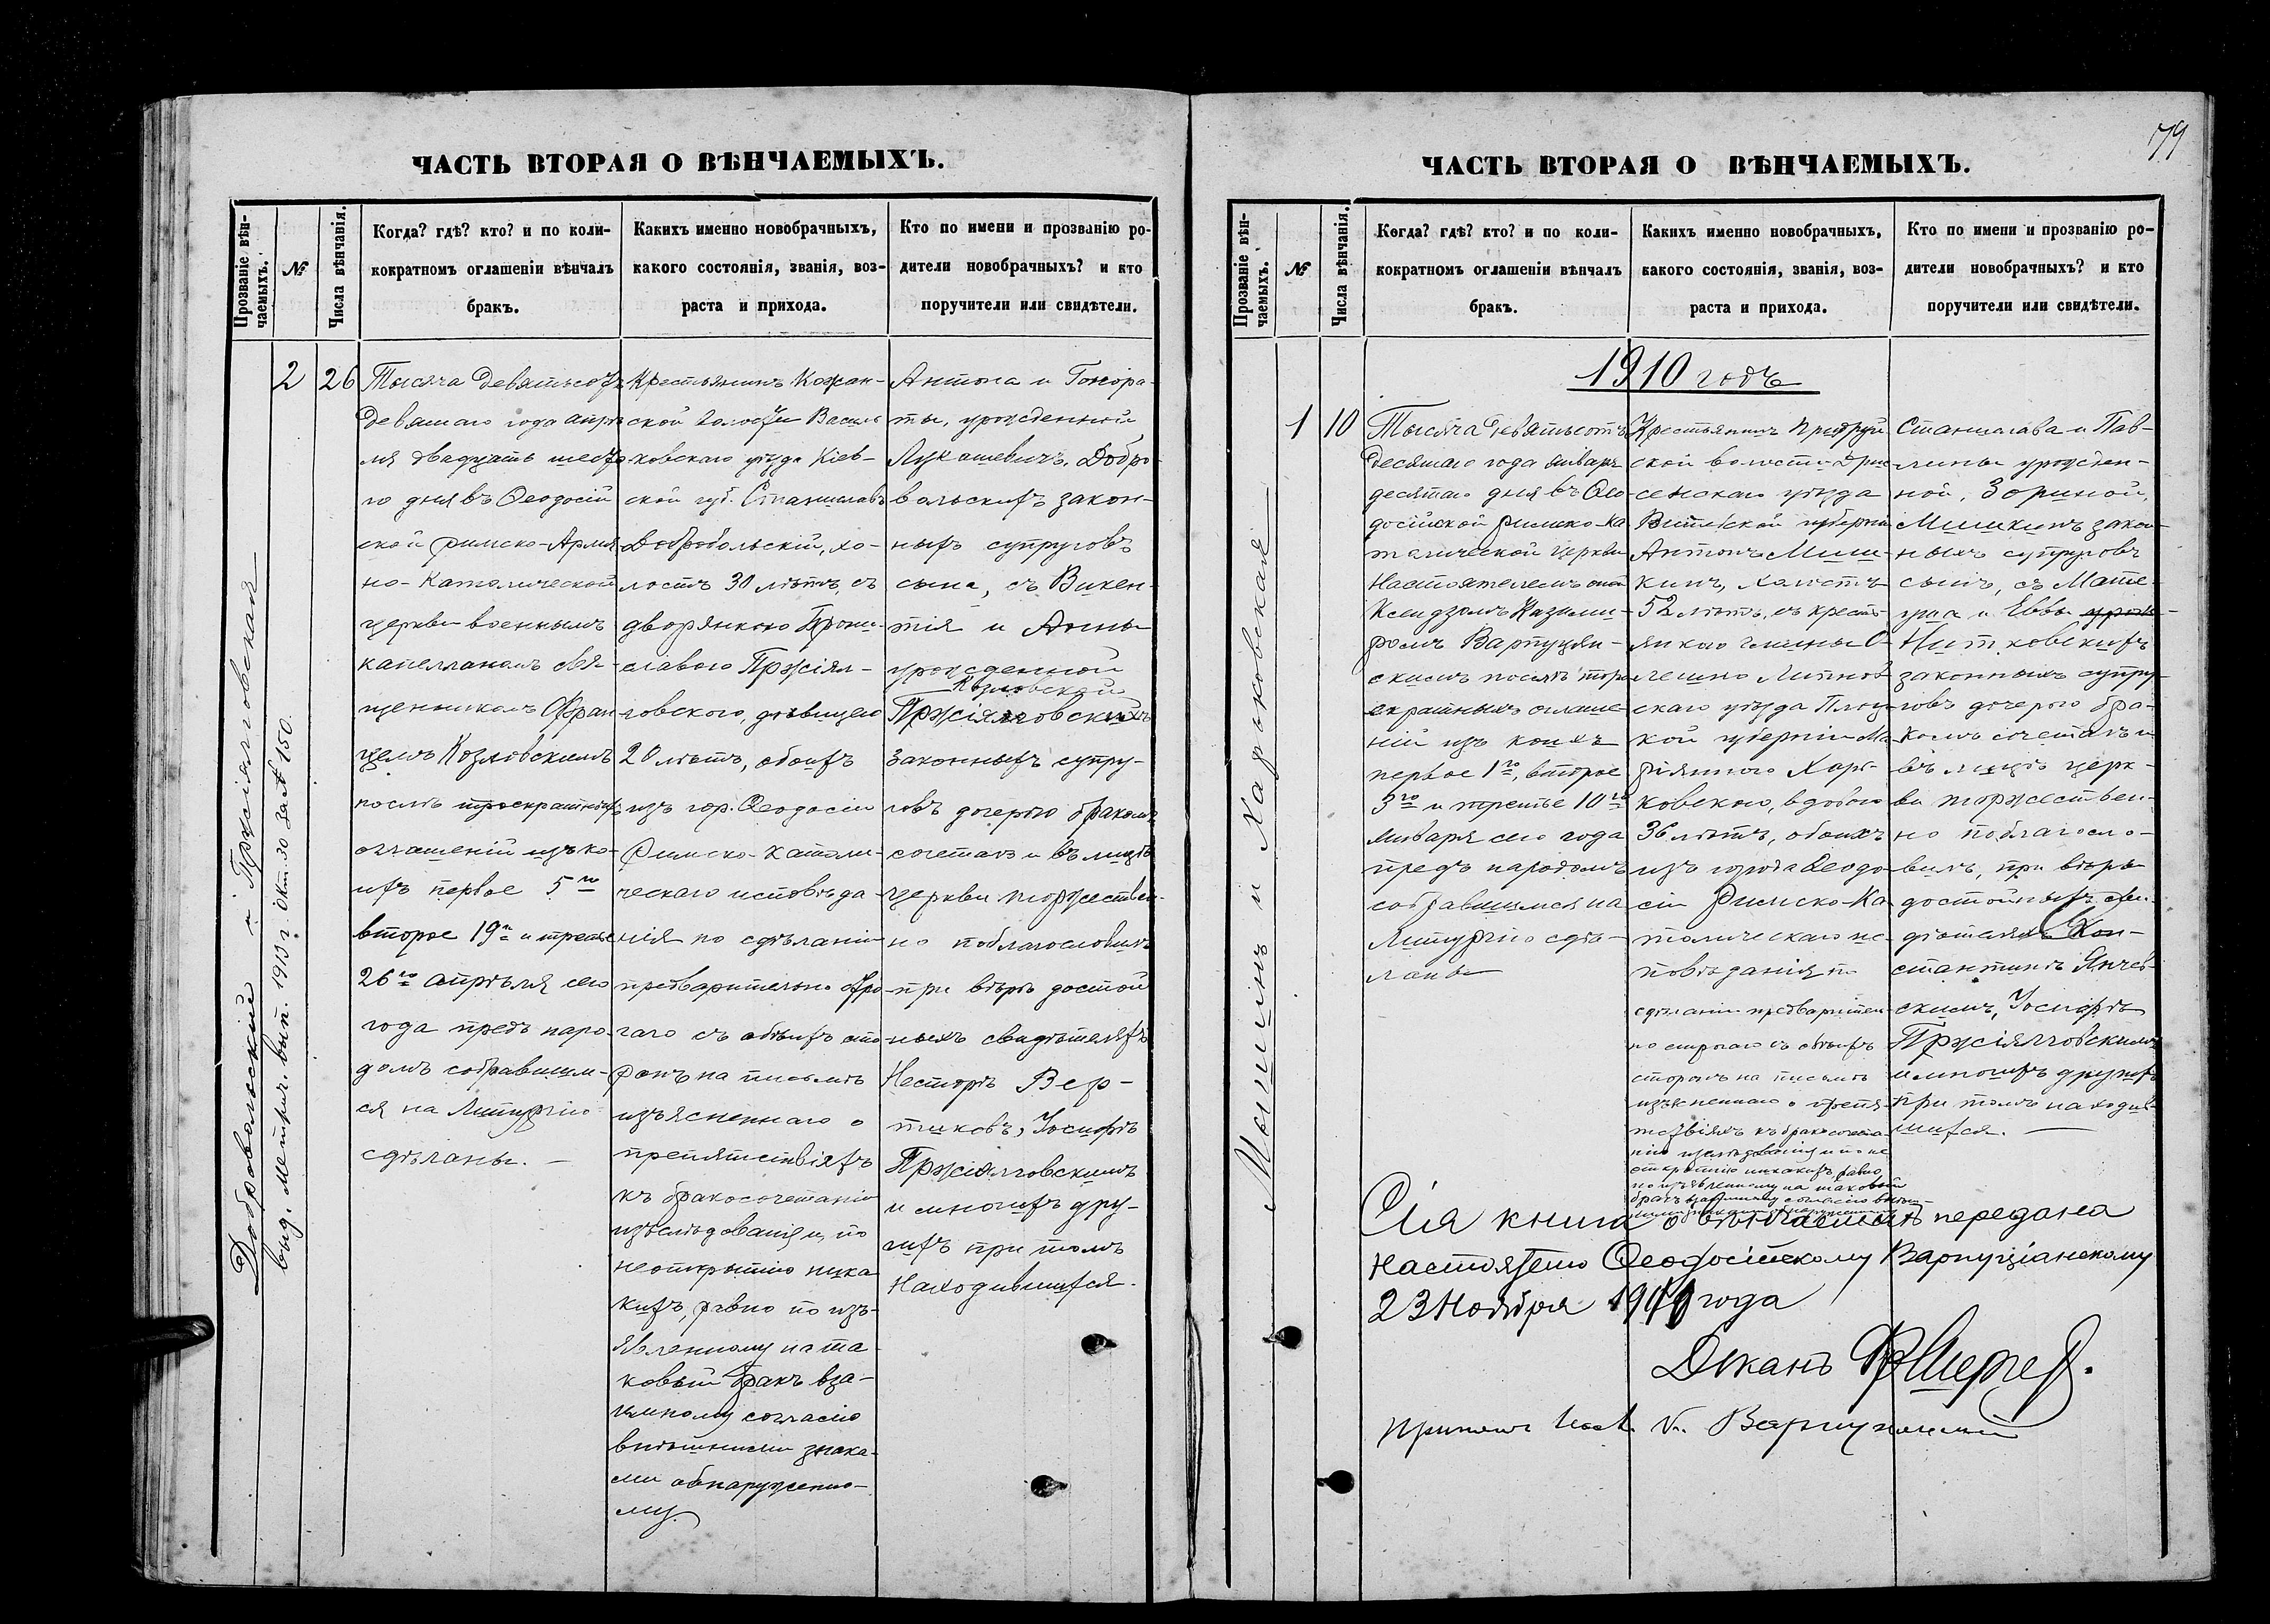 ЧАСТЬ ВТОРАЯ О ВѢНЧАЕМЫХЪ.
Прозваніе вѣн-
чаемыхъ.
№
Числа вѣнчанія.
Когда? гдѣ? кто? и по коли-
кократномъ оглашеніи вѣнчалъ
бракъ.
Какихъ именно новобрачныхъ,
какого состоянія, званія, воз-
раста и прихода.
Кто по имени и прозванію ро-
дители новобрачныхъ? и кто
поручители или свидѣтели.
Добровольскій и Пржіялговская
выд. метрич. вып. 1913 г. Окт. 30 за № 150.
2
26
Тысяча девятьсотъ
девятаго года апрѣ
ля двадцать шесто
го дня въ Ѳеодосій
ской римско-Армя
но-Католической
церкви военнымъ
капелланомъ свя-
щенникомъ Фран
цемъ Козловскимъ
послѣ троекратныхъ
оглашеній изъ ко-
ихъ первое 5го
второе 19го и третье
26го апрѣля сего
года предъ наро-
домъ собравшим-
ся на Литургію
сдѣланы. —
Крестьянинъ Кожан-
ской волости Василь
ковскаго уѣзда Кіев-
ской губ. Станиславъ
Добровольскій, хо-
лостъ 30 лѣтъ, съ
дворянкою Брони-
славою Пржіял-
говскою, дѣвицею
20 лѣтъ, обоихъ
изъ гор. Ѳеодосіи
Римско-католи-
ческаго исповѣда-
нія по сдѣланіи
предварительно стро-
гаго съ обѣихъ сто
ронъ на письмѣ
изъясненнаго о
препятствіяхъ
къ бракосочетанію
изслѣдованія и, по
неоткрытію ника
кихъ, равно по изъ-
явленному на та-
ковый бракъ вза-
имному согласію
внѣшними знака-
ми обнаруженно-
му.
Антона и Гонора-
ты, урожденной
Лукашевичъ, Добро-
вольскихъ закон-
ныхъ супруговъ
сына, съ Викен-
тія и Анны
урожденной
Козловской
Пржіялговскихъ
законныхъ супру-
говъ дочерью бракомъ
сочеталъ и въ лицѣ
церкви торжествен-
но поблагословилъ
при вѣрѣ достой
ныхъ свидѣтеляхъ
Несторѣ Вер-
тиковъ, Іосифѣ
Пржіялговскимъ
и многихъ дру-
гихъ при томъ
находившихся.
79
ЧАСТЬ ВТОРАЯ О ВѢНЧАЕМЫХЪ.
Прозваніе вѣн-
чаемыхъ.
№
Числа вѣнчанія.
Когда? гдѣ? кто? и по коли-
кократномъ оглашеніи вѣнчалъ
бракъ.
Какихъ именно новобрачныхъ,
какого состоянія, званія, воз-
раста и прихода.
Кто по имени и прозванію ро-
дители новобрачныхъ? и кто
поручители или свидѣтели.
1910 годъ
Мишкинъ и Харьковская
1
10
Тысяча девятьсотъ
десятаго года января
десятаго дня въ Ѳео-
досійской римско-ка
толической церкви
Настоятелемъ оной
Ксендзомъ Казими-
ромъ Варпуцян-
скимъ послѣ трое
кратныхъ оглаше-
ній изъ коихъ
первое 1го, второе
3го и третье 10го
января сего года
предъ народомъ
собравшимся на
Литургію сдѣ-
ланы
Крестьянинъ Придруй
ской волости Дри-
сенскаго уѣзда
Витебской губерніи
Антонъ Миш-
кинъ, холостъ
52 лѣтъ, съ кресть
янкою гмины О-
лешно Липнов
скаго уѣзда Плоц-
кой губерніи Ма
ріянною Харь-
ковскою, вдовою
36 лѣтъ, обоихъ
изъ города Ѳеодо
сіи Римско-Ка
толическаго ис-
повѣданія по
сдѣланіи предварител
но строгаго съ обѣихъ
сторонъ на письмѣ
изъясненнаго о препя-
тствіяхъ къ бракосочета-
нію изслѣдованія и по не
открытію никакихъ, равно
по изъявленному на таковый
бракъ взаимному согласію внѣш-
Станислава и Пав-
лины урожден-
ной, Зориной,
Мишкинъ закон-
ныхъ супруговъ
сынъ, съ Мате-
уша и Еввы урож
законныхъ супру-
говъ дочерью бра-
комъ сочеталъ и
въ лицѣ церк-
ви торжествен-
но поблагосло-
вилъ, при вѣрѣ
достойныхъ сви-
дѣтеляхъ Кон-
стантинѣ Янчев-
скимъ, Іосифѣ
Пржіялговскимъ
и многихъ другихъ
при томъ находив-
шихся. —
Сія книга о вѣнчаемыхъ передана
Настоятелю Ѳеодосійскому Варпуціанскому
23 Ноября года
Деканъ
Принялъ Наст. Варпуцянскій